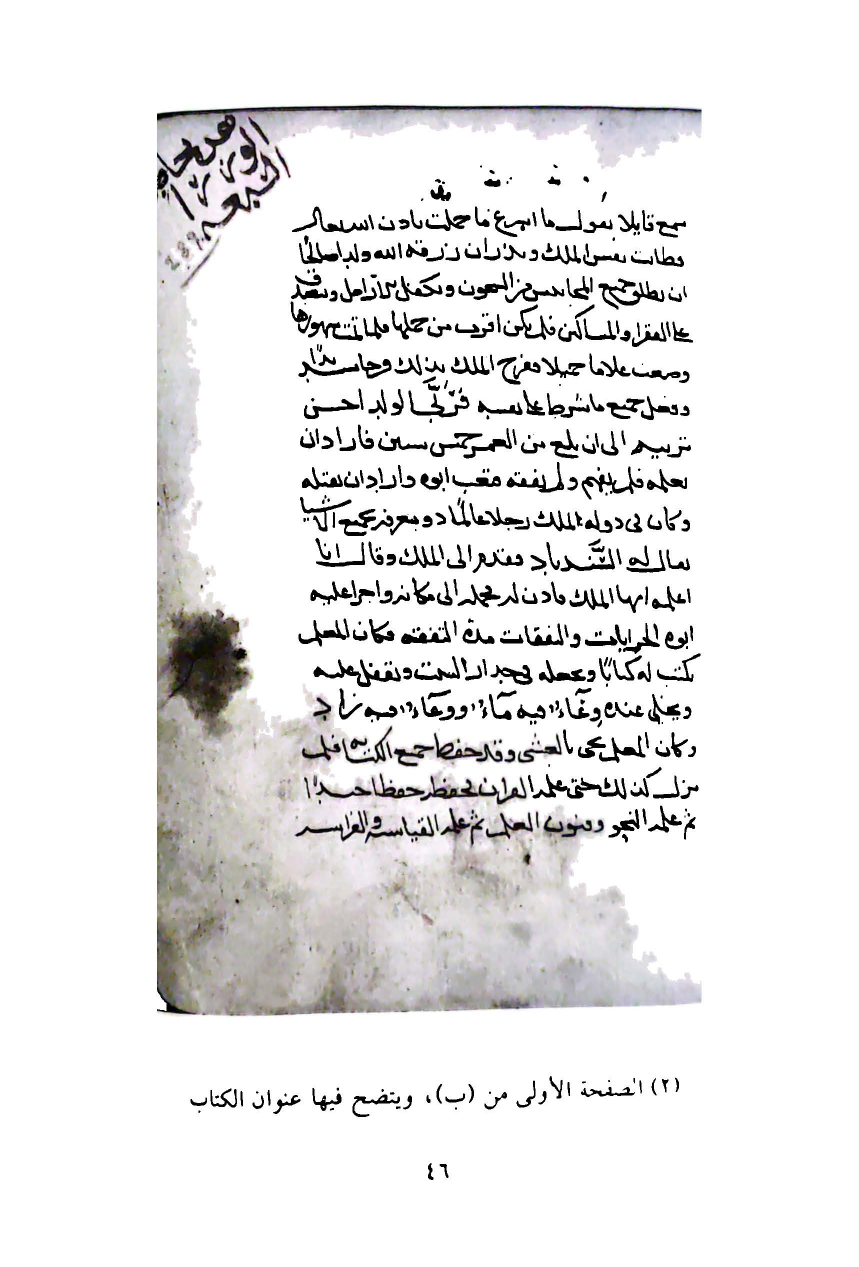 الوزرا
السبعه
سمع قايلا يقول ما اسرع ما حملت باذن الله تعالى
وطابت نفس الملك ونذر ان رزقه الله ولدا صالحا
ان يطلق جميع المحابيس من السجون ويكفل الارامل ويتصدق
على الفقرا والمساكين فلم يكن اقرب من حملها فلما تمت شهورها
وضعت غلاما جميلا ففرح الملك بذلك فرحا شديدا
وفعل جميع ما شرط على نفسه فربي الولد احسن
تربيه الى ان بلغ من العمر خمس سنين فاراد ان
يعلمه فلم يفهم ولم يفقه فغضب ابوه واراد ان يقتله
وكان في دولة الملك رجلا عالما ذو معرفه بجميع الاشيا
يقال له السندباد فتقدم الى الملك وقال انا
اعلمه ايها الملك فاذن له فحمله الى مكانه واجرا عليه
ابوه الجرايات والنفقات مدة التفقه فكان المعلم
يكتب له كتابا ويجعله في جدار البيت ويقفل عليه
ويخلي عنده وعاء فيه ماء ووعاء فيه زاد
وكان المعلم يجي بالعشي وقد حفظ جميع الكتابه فلم
يزل كذلك حتى علمه القران فحفظه حفظا جيدا
ثم علمه النحو وفنون العلم ثم علمه القياسه والفراسه
(٢) الصفحة الأولى من (ب)، ويتضح فيها عنوان الكتاب
٤٦